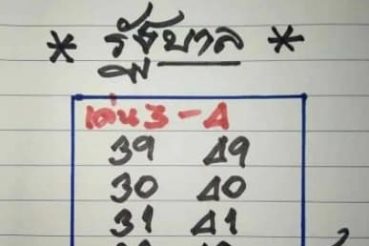 * รัฐบาล *
เด่น 3 - 4
39 49
30 40
31 41